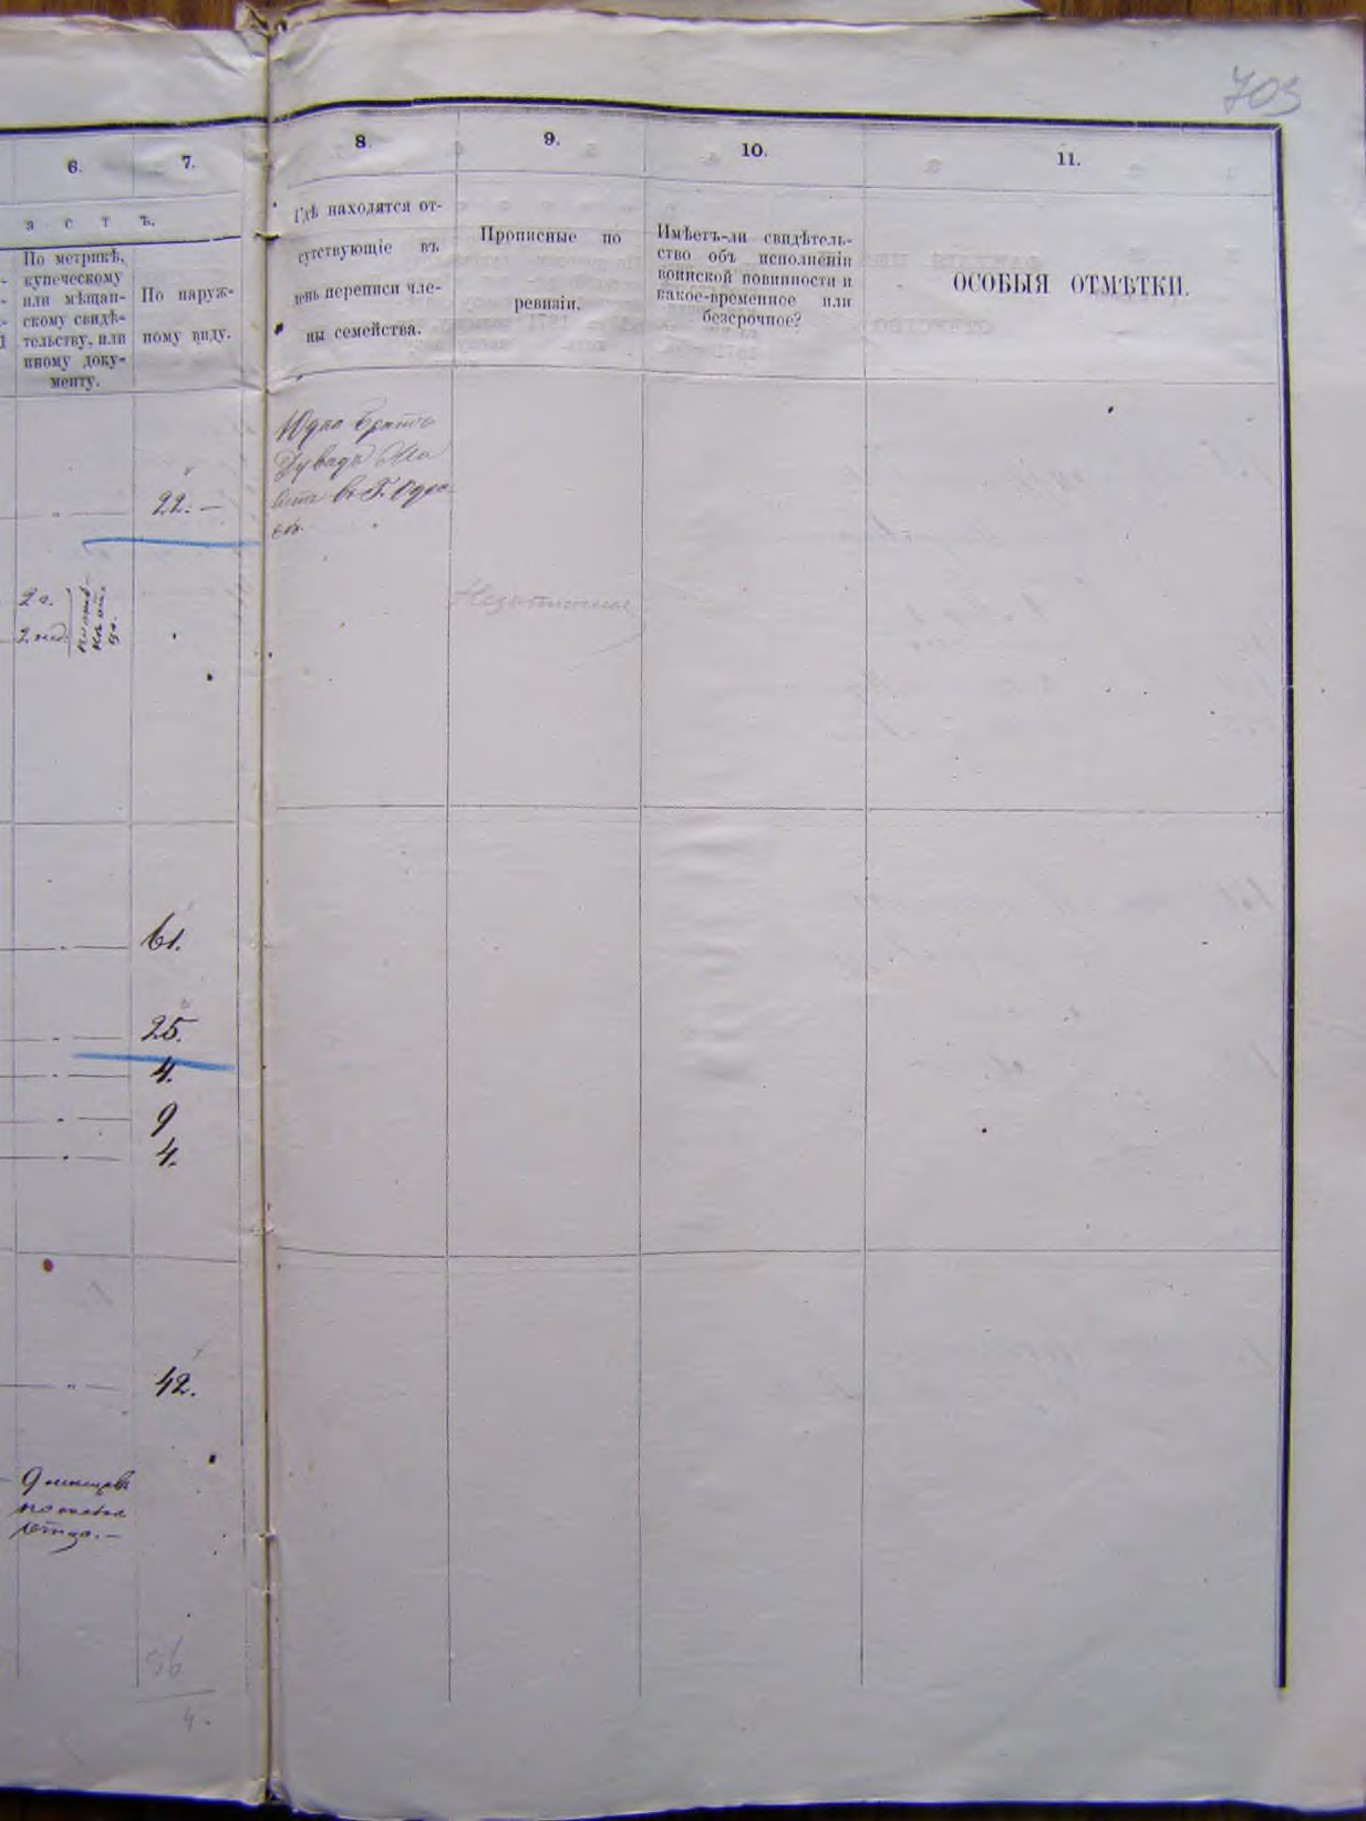 703
6.
7.
8.
9.
10.
11.
а с т ъ.
По метрикѣ,
купеческому
или мѣщан-
скому свидѣ-
тельству, или
иному доку-
менту.
По наруж-
ному виду.
Гдѣ находятся от-
сутствующіе въ
день переписи чле-
ны семейства.
Прописные по
ревизіи.
Имѣетъ-ли свидѣтель-
ство объ исполненіи
воинской повинности и
какое-временное или
безсрочное?
ОСОБЫЯ ОТМѢТКИ.
22. —
Юдка братъ
въ Г. Одес
сѣ.
2 г.
2 нед.
61.
25.
4.
9
4.
42.
9 мѣсяцевъ
отца. —
56
4.